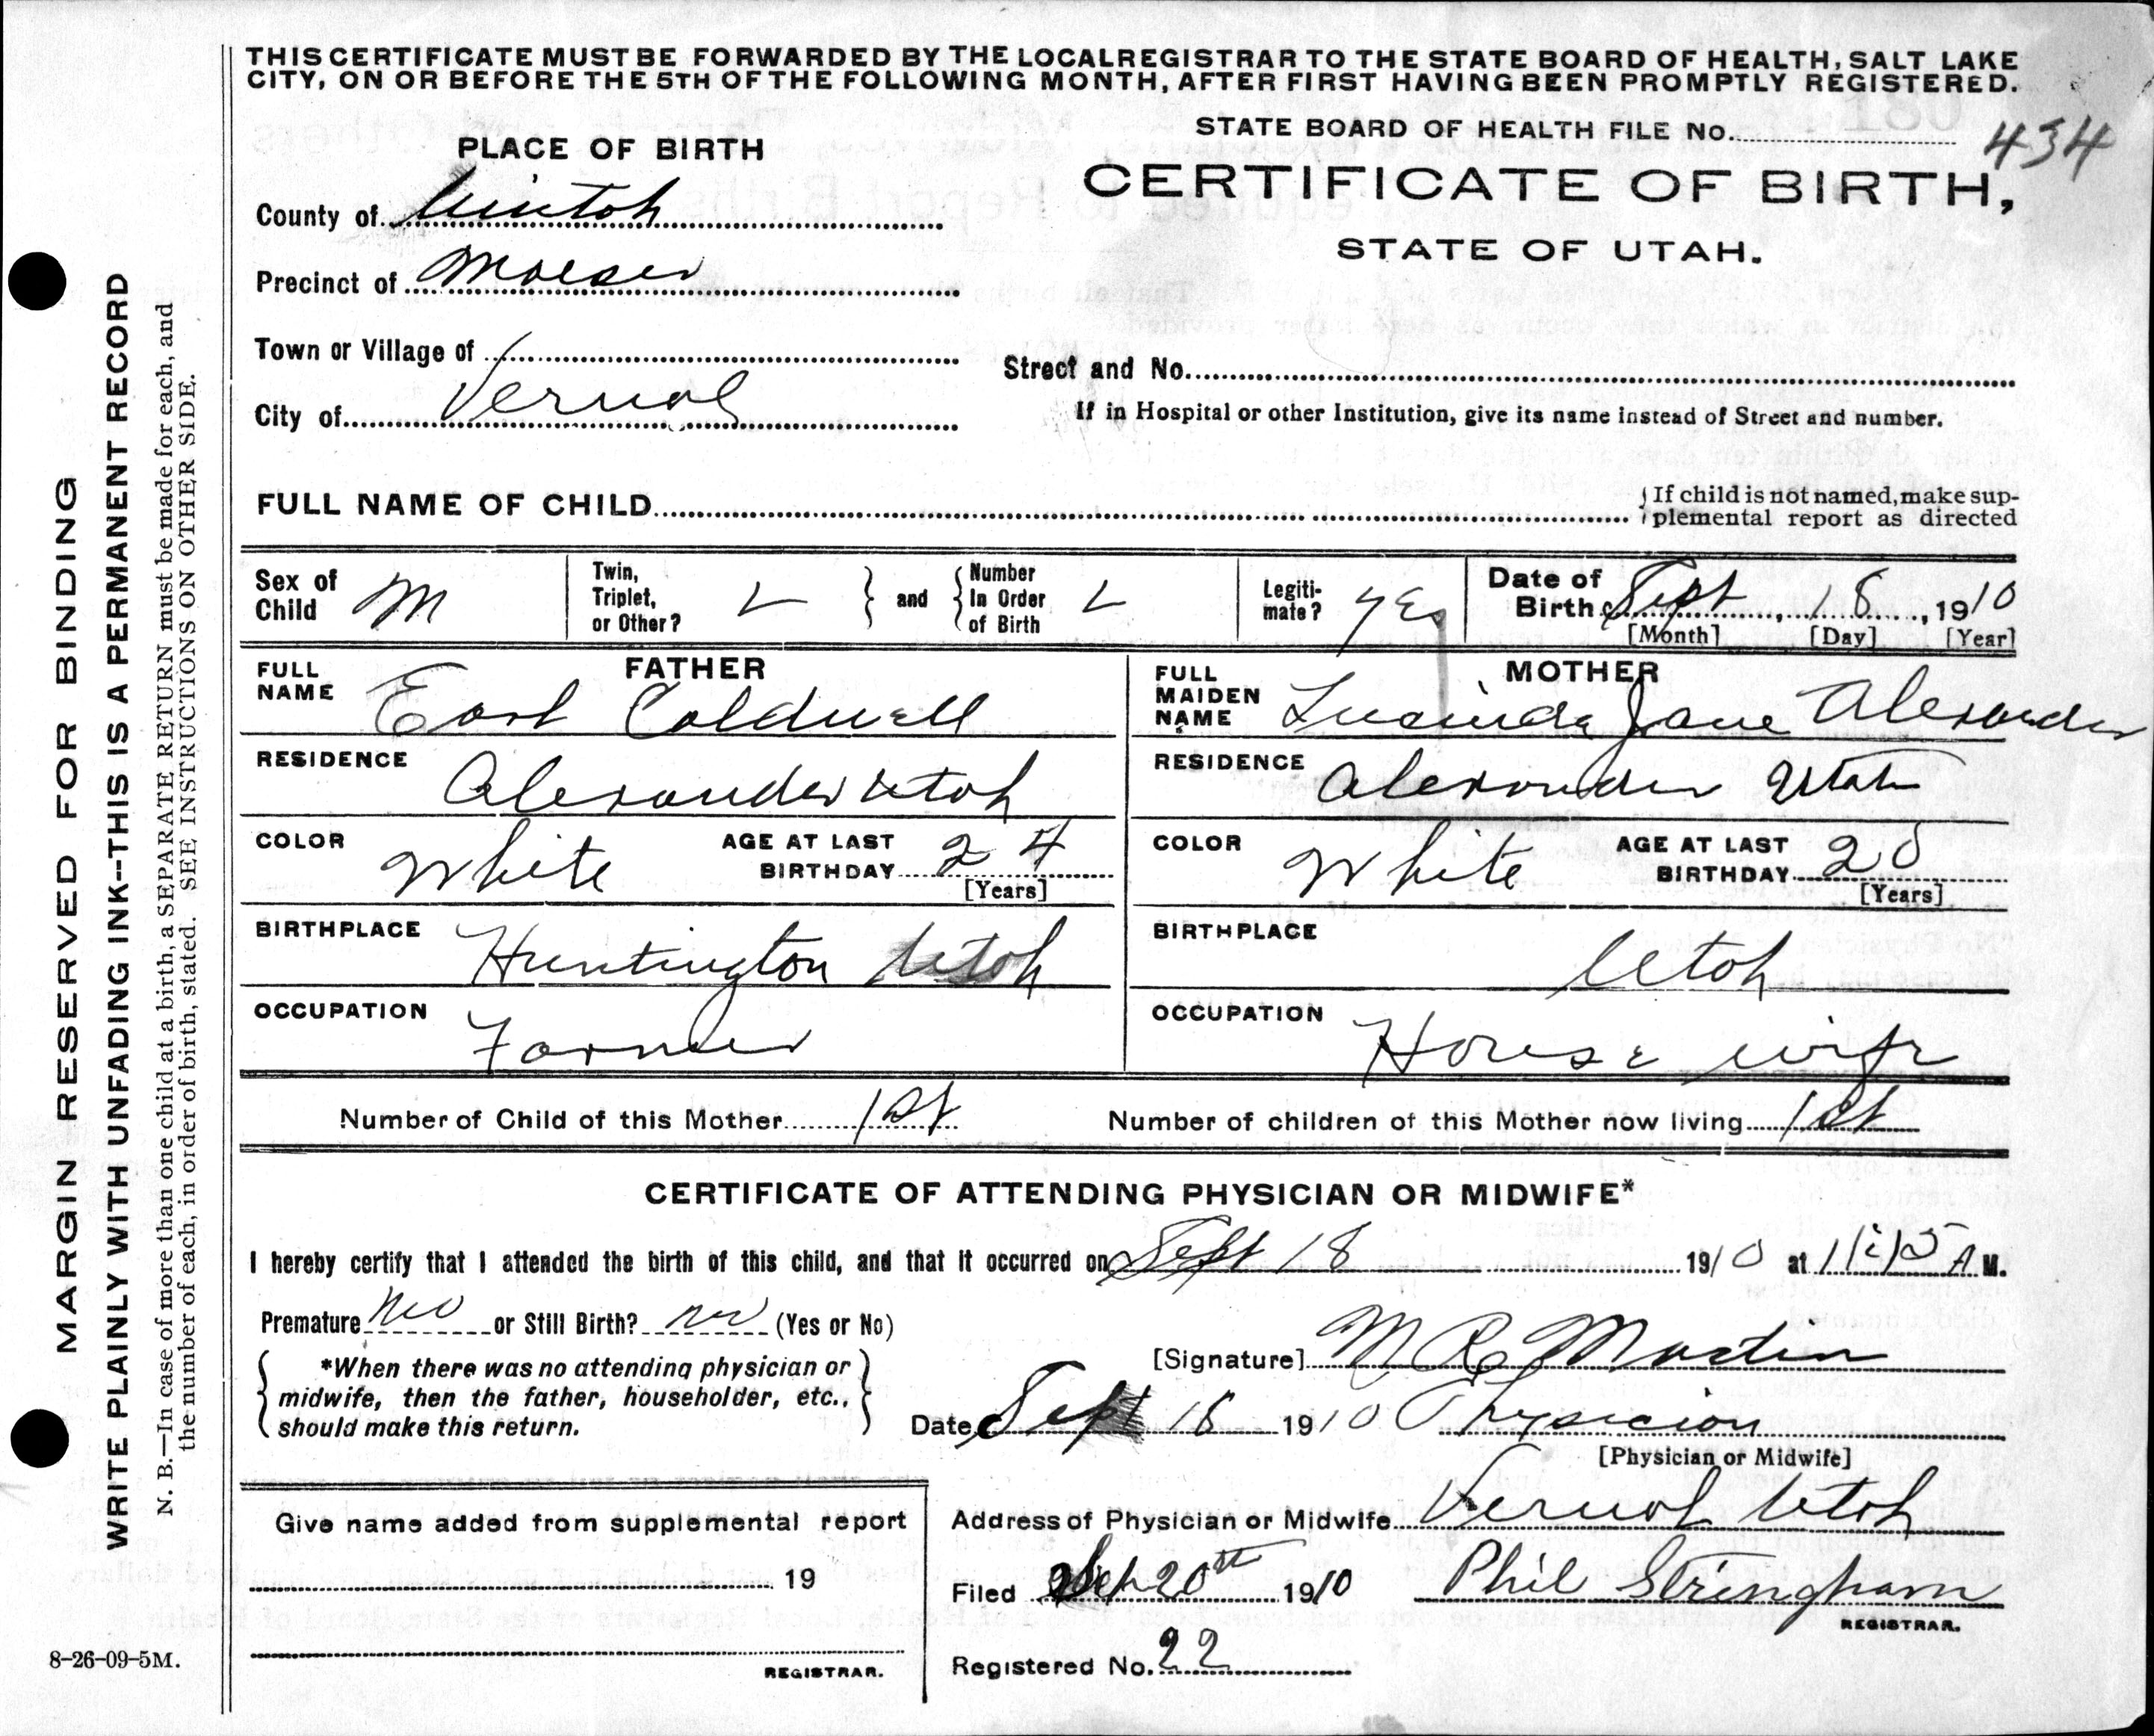 THIS CERTIFICATE MUST BE FORWARDED BY THE LOCAL REGISTRAR TO THE STATE BOARD OF HEALTH, SALT LAKE
CITY, ON OR BEFORE THE 5TH OF THE FOLLOWING MONTH, AFTER FIRST HAVING BEEN PROMPTLY REGISTERED.
STATE BOARD OF HEALTH FILE No. 434
PLACE OF BIRTH
CERTIFICATE OF BIRTH,
STATE OF UTAH.
County of Uintah
Precinct of Maeser
Town or Village of
Street and No.
City of Vernal
If in Hospital or other Institution, give its name instead of Street and number.
FULL NAME OF CHILD
If child is not named, make sup-
plemental report as directed
Sex of Child M
Twin, Triplet, or Other?
and
Number In Order of Birth
Legiti-mate? yes
Date of Birth Sept 18, 1910
[Month] [Day] [Year]
FATHER
FULL NAME Earl Caldwell
RESIDENCE Alexander Utah
COLOR White AGE AT LAST BIRTHDAY 24
[Years]
BIRTHPLACE Huntington Utah
OCCUPATION Farmer
MOTHER
FULL MAIDEN NAME Lucinda Jane Alexander
RESIDENCE Alexander Utah
COLOR White AGE AT LAST BIRTHDAY 20
[Years]
BIRTHPLACE Utah
OCCUPATION House wife
Number of Child of this Mother 1st
Number of children of this Mother now living 1st
CERTIFICATE OF ATTENDING PHYSICIAN OR MIDWIFE*
I hereby certify that I attended the birth of this child, and that it occurred on Sept 18 1910 at A M.
Premature No or Still Birth? no (Yes or No)
*When there was no attending physician or
midwife, then the father, householder, etc.,
should make this return.
[Signature] M R Martin
Date Sept 18 1910 Physician
[Physician or Midwife]
Give name added from supplemental report
19
REGISTRAR.
Address of Physician or Midwife Vernal Utah
Filed Sep 20th 1910 Phil Stringham
REGISTRAR.
Registered No. 22
8-26-09-5M.
MARGIN RESERVED FOR BINDING
WRITE PLAINLY WITH UNFADING INK--THIS IS A PERMANENT RECORD
N. B.—In case of more than one child at a birth, a SEPARATE RETURN must be made for each, and
the number of each, in order of birth, stated. SEE INSTRUCTIONS ON OTHER SIDE.